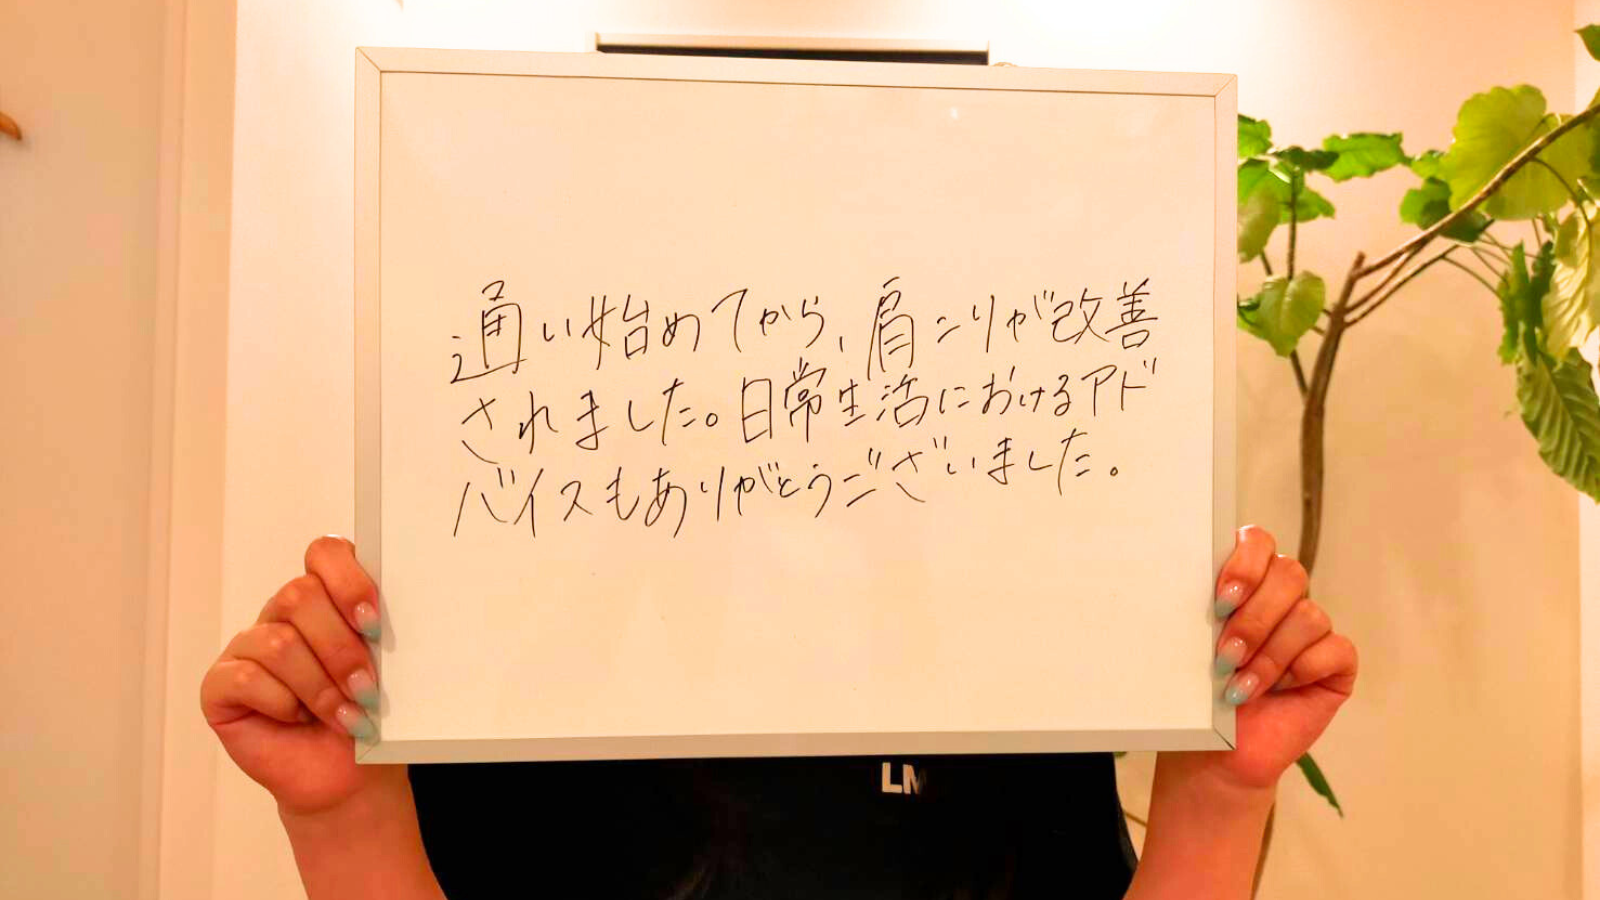 通い始めてから、肩こりが改善
されました。日常生活におけるアド
バイスもありがとうございました。
LM